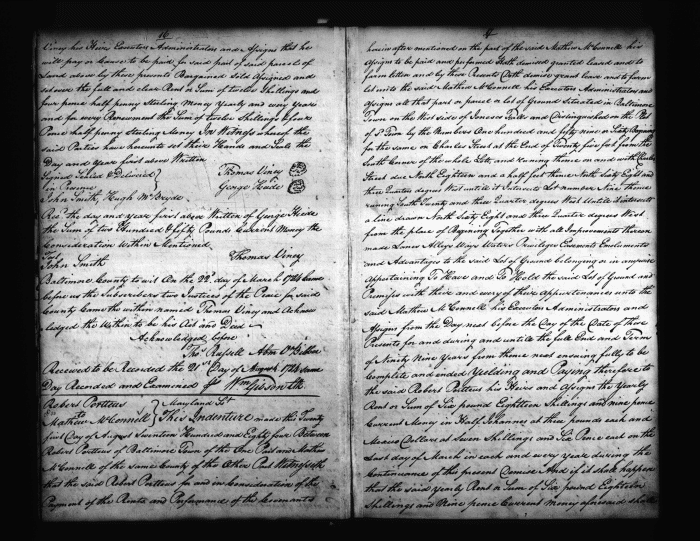 16
Viney his Heirs Executors Administrators and Assigns that he
will pay or cause to be paid for said part of said parcel of
Land above by these presents Bargained Sold Assigned and
set over the full and clear Rent or Sum of twelve Shillings and
four pence half penny Sterling Money Yearly and every Year
and for every Payment the Sum of twelve Shillings & four
Pence half penny Sterling Money In Witness whereof the
said Parties have hereunto set their Hands and Seals the
Day and Year first above Written
Signed Sealed & Delivered
in Presence
Thomas Viney
George Heide
John Smith, Hugh McBryde
Recd the day and Year first above Written of George Heide
the Sum of two Hundred & fifty Pounds Current Money the
Consideration Within Mentioned
John Smith
Thomas Viney
Baltimore County to wit On the 22d day of March 1784 Came
before us the Subscribers two Justices of the Peace for said
County Came the within named Thomas Viney and Acknow
ledged the Within to be his Act and Deed
Acknowledged before
Received to be Recorded the 21st Day of August 1784 same
Day Recorded and Examined Wm Gibson
Robert Porteus
to
Mathew McConnell
Maryland Sct
This Indenture made this Twenty
first Day of August Seventeen Hundred and Eighty four Between
Robert Porteus of Baltimore Town of the One Part and Mathew
McConnell of the Same County of the Other Part Witnesseth
that the said Robert Porteus for and in Consideration of the
Payment of the Rents and Performance of the Covenants
herein after mentioned on the part of the said Mathew McConnell his
Assigns to be paid and performed Hath demised granted leased and to
farm letten and by these Presents Doth demise grant lease and to farm
let unto the said Mathew McConnell his Executors Administrators and
Assigns all that part or parcel or Lot of Ground Situated in Baltimore
Town on the West side of Joneses Falls and Distinguished on the Plat
of Town by the Numbers One hundred and fifty nine or Sixty Beginning
for the same on Charles Street at the End of Twenty five feet from the
South Corner of the whole Lots and runing thence on and with Charles
Street due North Eighteen and a half feet thence North Sixty Eight and
three Quarter degrees West until it Intersects Lot number Nine thence
runing South Twenty and three Quarter degrees West Until it intersects
a line drawn North Sixty Eight and three Quarter degrees West
from the place of Begining Together with all Improvements thereon
made Lanes Alleys Ways Waters Privileges Easments Emoluments
and Advantages to the said Lot of Ground belonging or in anywise
appertaining To Have and To Hold the said Lot of Ground and
Premises with their and every of their appurtenances unto the
said Mathew McConnell his Executors Administrators and
Assigns from the Day next before the Day of the Date of these
Presents for and during and until the full End and Term
of Ninety Nine Years from thence next ensuing fully to be
Complete and ended Yielding and Paying therefore to
the said Robert Porteus his Heirs and Assigns the Yearly
Rent or Sum of Six pound Eighteen Shillings and nine pence
Current Money in Half Johannes at three pounds each and
Mexico Dollars at Seven Shillings and Six Pence each on the
Last day of March in each and every year during the
Continuance of this present Demise And if it shall happen
that the said Yearly Rent or Sum of Six pound Eighteen
Shillings and Nine pence Current money aforesaid shall